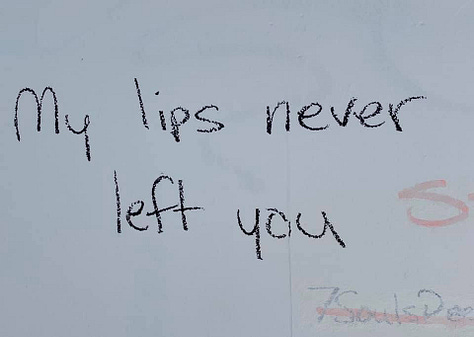 My lips never
left you
7SoulsDee